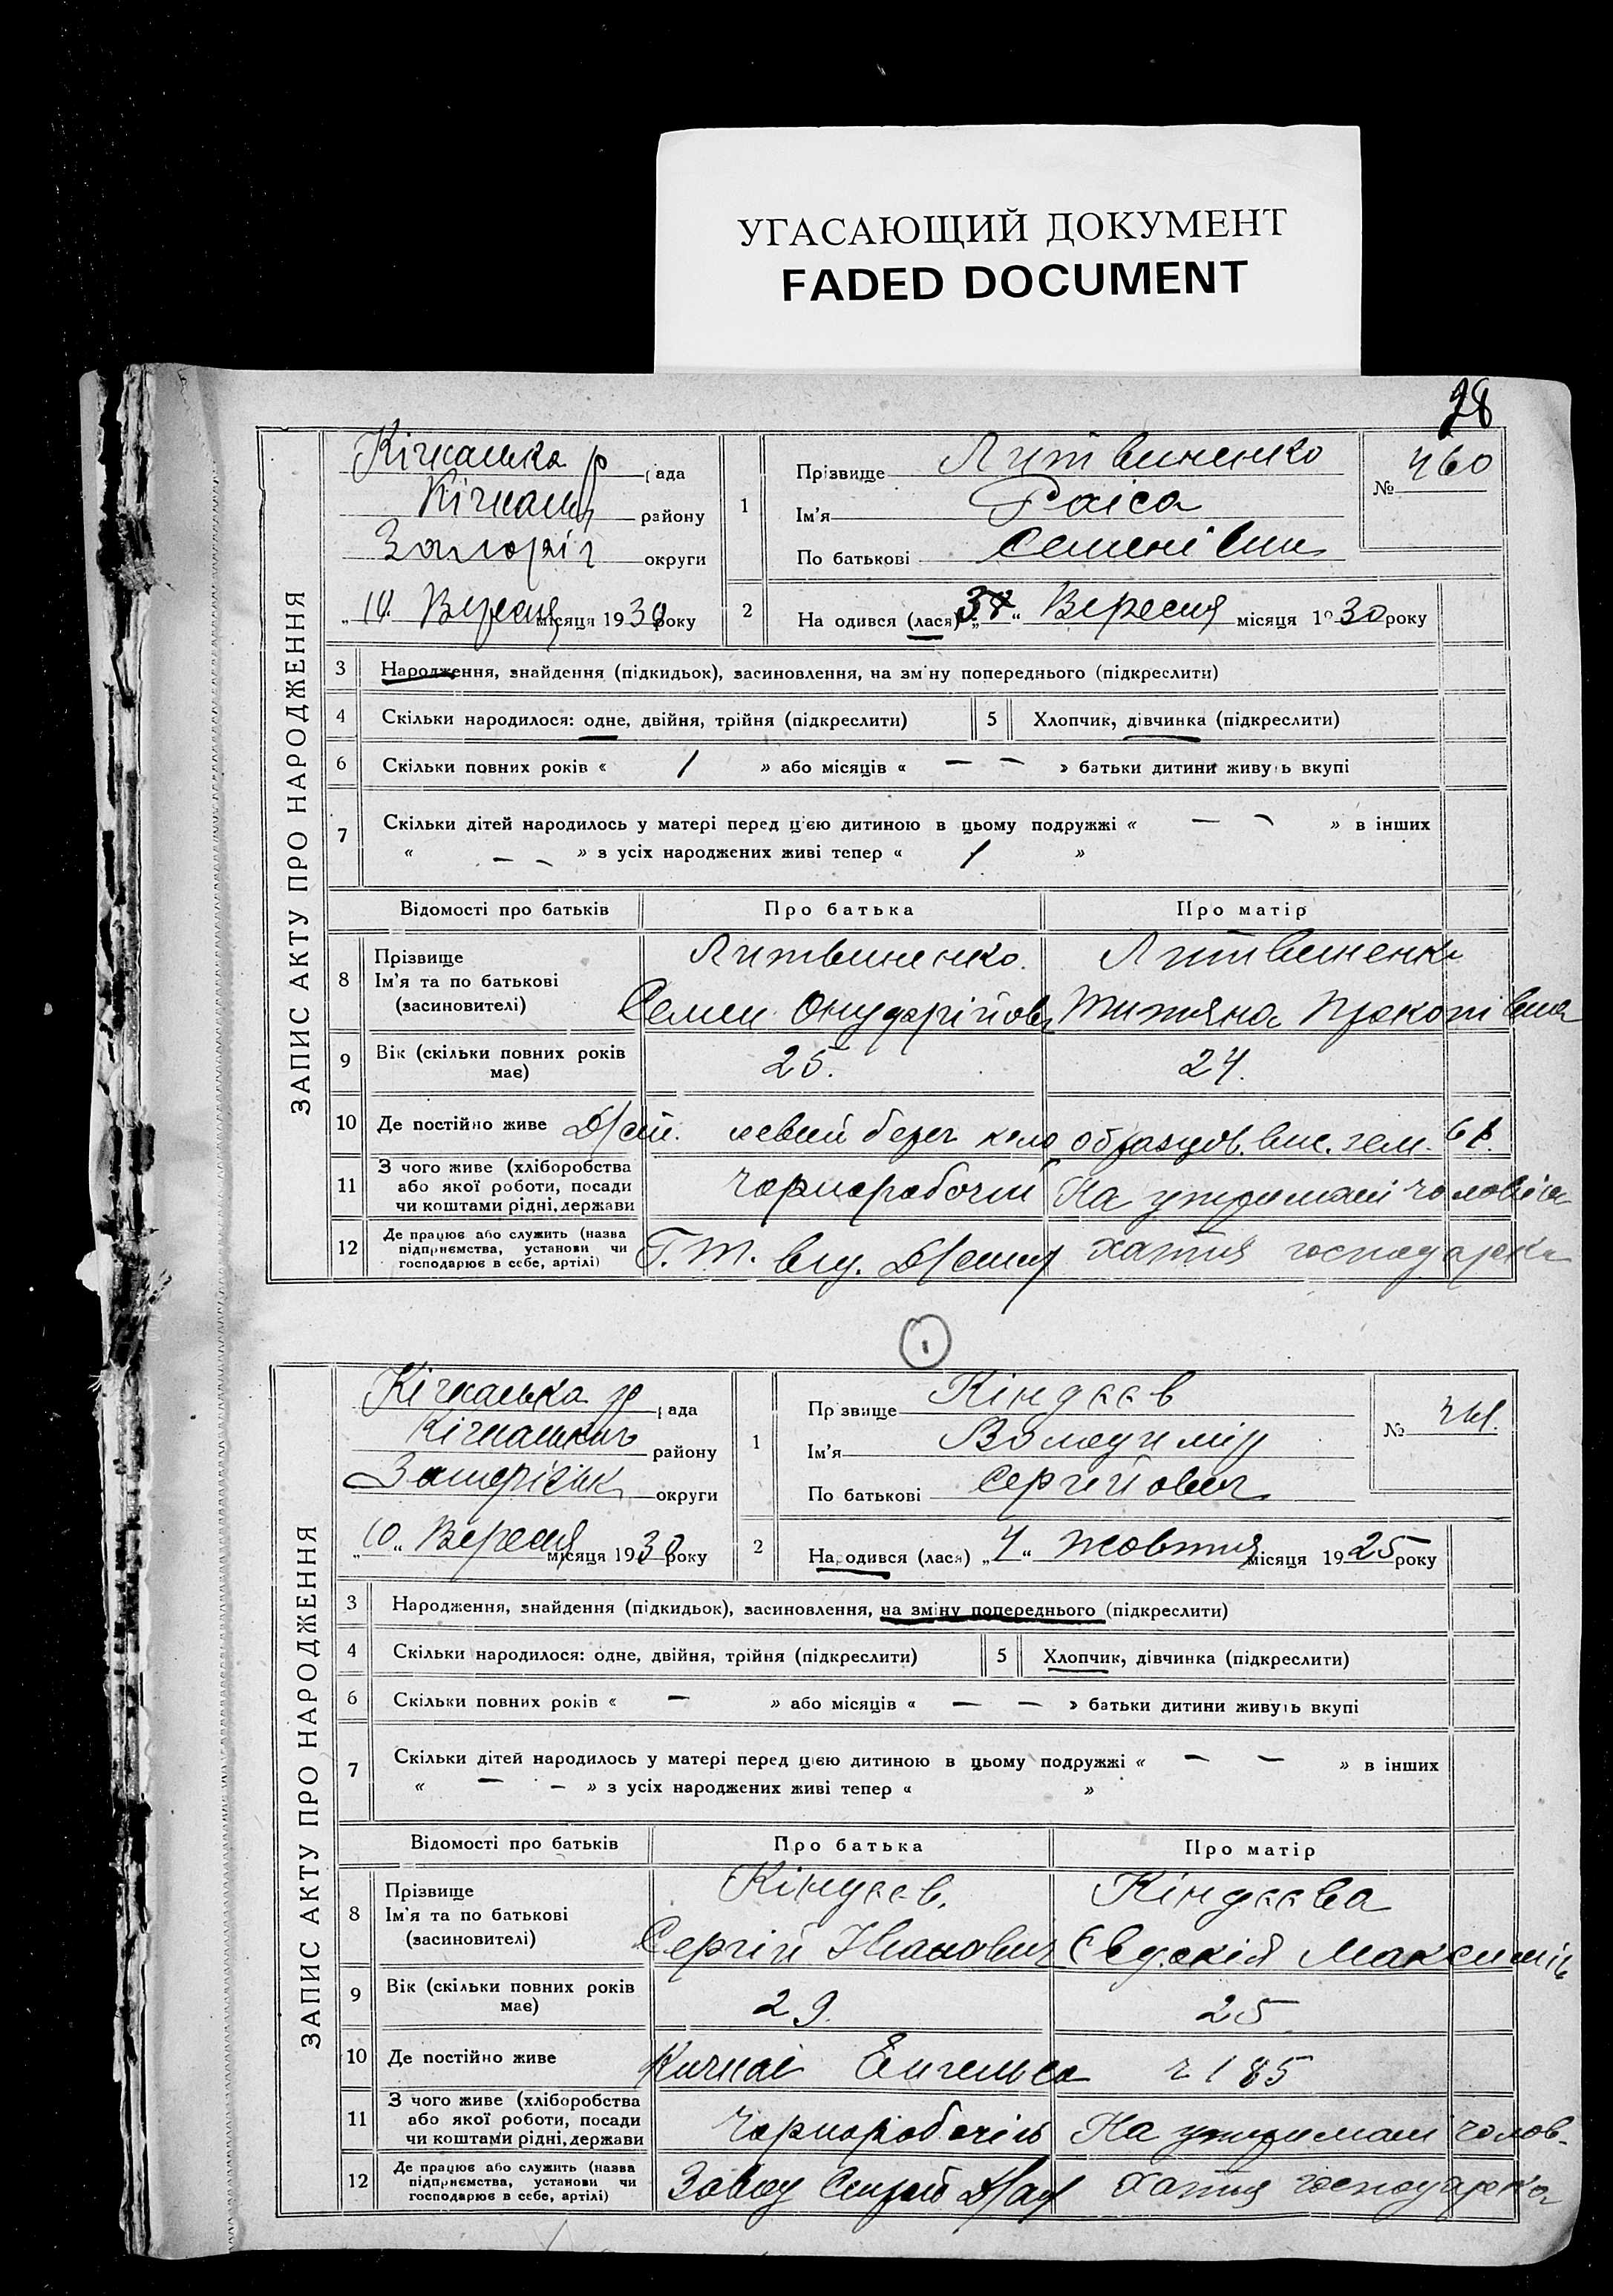 УГАСАЮЩИЙ ДОКУМЕНТ
FADED DOCUMENT
28
ЗАПИС АКТУ ПРО НАРОДЖЕННЯ
Кічкаська р рада
Кічкаськ району
Запоріз округи
„10“ Вересня місяця 1930 року
1 Прізвище Литвиненко
Ім'я Раіса
По батькові Семенівна
№ 460
2 На одився (лася) „3“ Вересня місяця 1930 року
3 Народження, знайдення (підкидьок), засиновлення, на зміну попереднього (підкреслити)
4 Скільки народилося: одне, двійня, трійня (підкреслити) 5 Хлопчик, дівчинка (підкреслити)
6 Скільки повних років « 1 » або місяців « — — » батьки дитини живуть вкупі
7 Скільки дітей народилось у матері перед цією дитиною в цьому подружжі « — — » в інших
« — — » з усіх народжених живі тепер « 1 »
Відомості про батьків Про батька Про матір
8 Прізвище Литвиненко. Литвиненко
Ім'я та по батькові
(засиновителі) Семен Титяна Прокопівна
9 Вік (скільки повних років має) 25. 24.
10 Де постійно живе левий берег коло образцов.
11 З чого живе (хліборобства або якої роботи, посади чи коштами рідні, держави Чорноробочий На утримані чоловіка
12 Де працює або служить (назва підприємства, установи чи господарює в себе, артілі) хатня господарка
1
ЗАПИС АКТУ ПРО НАРОДЖЕННЯ
Кічкаська р рада
Кічкаськ району
Запорізьк округи
„10“ Вересня місяця 1930 року
1 Прізвище Кіндєєв
Ім'я Володимір
По батькові Сергійович
№ 461.
2 Народився (лася) „4“ Жовтня місяця 1925 року
3 Народження, знайдення (підкидьок), засиновлення, на зміну попереднього (підкреслити)
4 Скільки народилося: одне, двійня, трійня (підкреслити) 5 Хлопчик, дівчинка (підкреслити)
6 Скільки повних років « — » або місяців « — — » батьки дитини живуть вкупі
7 Скільки дітей народилось у матері перед цією дитиною в цьому подружжі « — — » в інших
« — — » з усіх народжених живі тепер « »
Відомості про батьків Про батька Про матір
8 Прізвище Кіндєєв. Кіндєєва
Ім'я та по батькові
(засиновителі) Сергій Іванович Євдокія Максимів
9 Вік (скільки повних років має) 29. 25
10 Де постійно живе Кичкас Енгельса 185
11 З чого живе (хліборобства або якої роботи, посади чи коштами рідні, держави Чорноробочій На утримані чолов.
12 Де працює або служить (назва підприємства, установи чи господарює в себе, артілі) Завод Хатня господарка